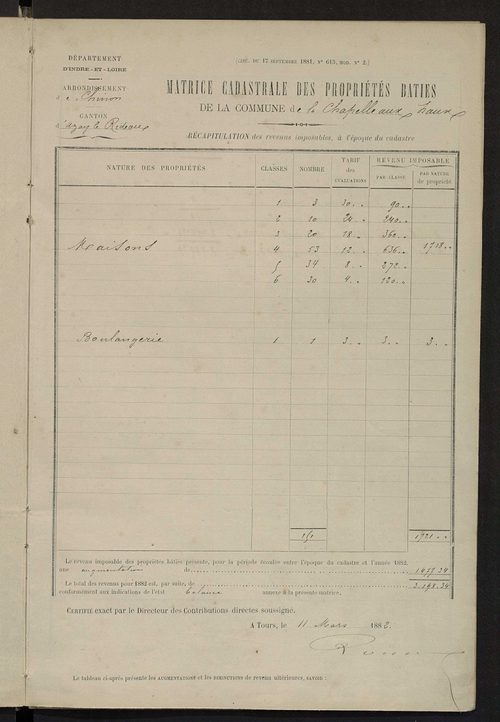 DÉPARTEMENT
D'INDRE-ET-LOIRE
ARRONDISSEMENT
de Chinon
CANTON
d'Azay le Rideau
(CIRC. DU 17 SEPTEMBRE 1881, N° 615, MOD. N° 2.)
MATRICE CADASTRALE DES PROPRIÉTÉS BATIES
DE LA COMMUNE de la Chapelle aux Naux
RÉCAPITULATION des revenus imposables, à l'époque du cadastre
NATURE DES PROPRIÉTÉS CLASSES NOMBRE TARIF des ÉVALUATIONS REVENU IMPOSABLE PAR CLASSE PAR NATURE de propriété
1 3 30 .. 90 ..
2 10 24 .. 240 ..
3 20 18 .. 360 ..
Maisons 4 53 12 .. 636 .. 1718 ..
5 34 8 .. 272 ..
6 30 4 .. 120 ..
Boulangerie 1 1 3 .. 3 .. 3 ..
151 1721 ..
Le revenu imposable des propriétés bâties présente, pour la période écoulée entre l'époque du cadastre et l'année 1882,
une augmentation de
Le total des revenus pour 1882 est, par suite, de
conformément aux indications de l'état balance annexé à la présente matrice.
CERTIFIÉ exact par le Directeur des Contributions directes soussigné.
A TOURS, le 11 Mars 1882.
Le tableau ci-après présente les AUGMENTATIONS et les DIMINUTIONS de revenu ultérieures, SAVOIR :